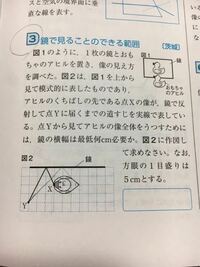 スと空気の境界面に垂
直な線を表す。
3 鏡で見ることのできる範囲 〔茨城〕
図1のように，1枚の鏡とおも
ちゃのアヒルを置き，像の見え方
を調べた。図2は，図1を上から
見て模式的に表したものであり，
図1
鏡
おもちゃ
のアヒル
アヒルのくちばしの先である点Xの像が，鏡で反射
して点Yに届くまでの道すじを実線で表してい
る。点Yから見てアヒルの像全体をうつすために
は，鏡の横幅は最低何cm必要か。図2に作図し
て求めなさい。なお，
方眼の1目盛りは
5cmとする。
図2
鏡
X
Y